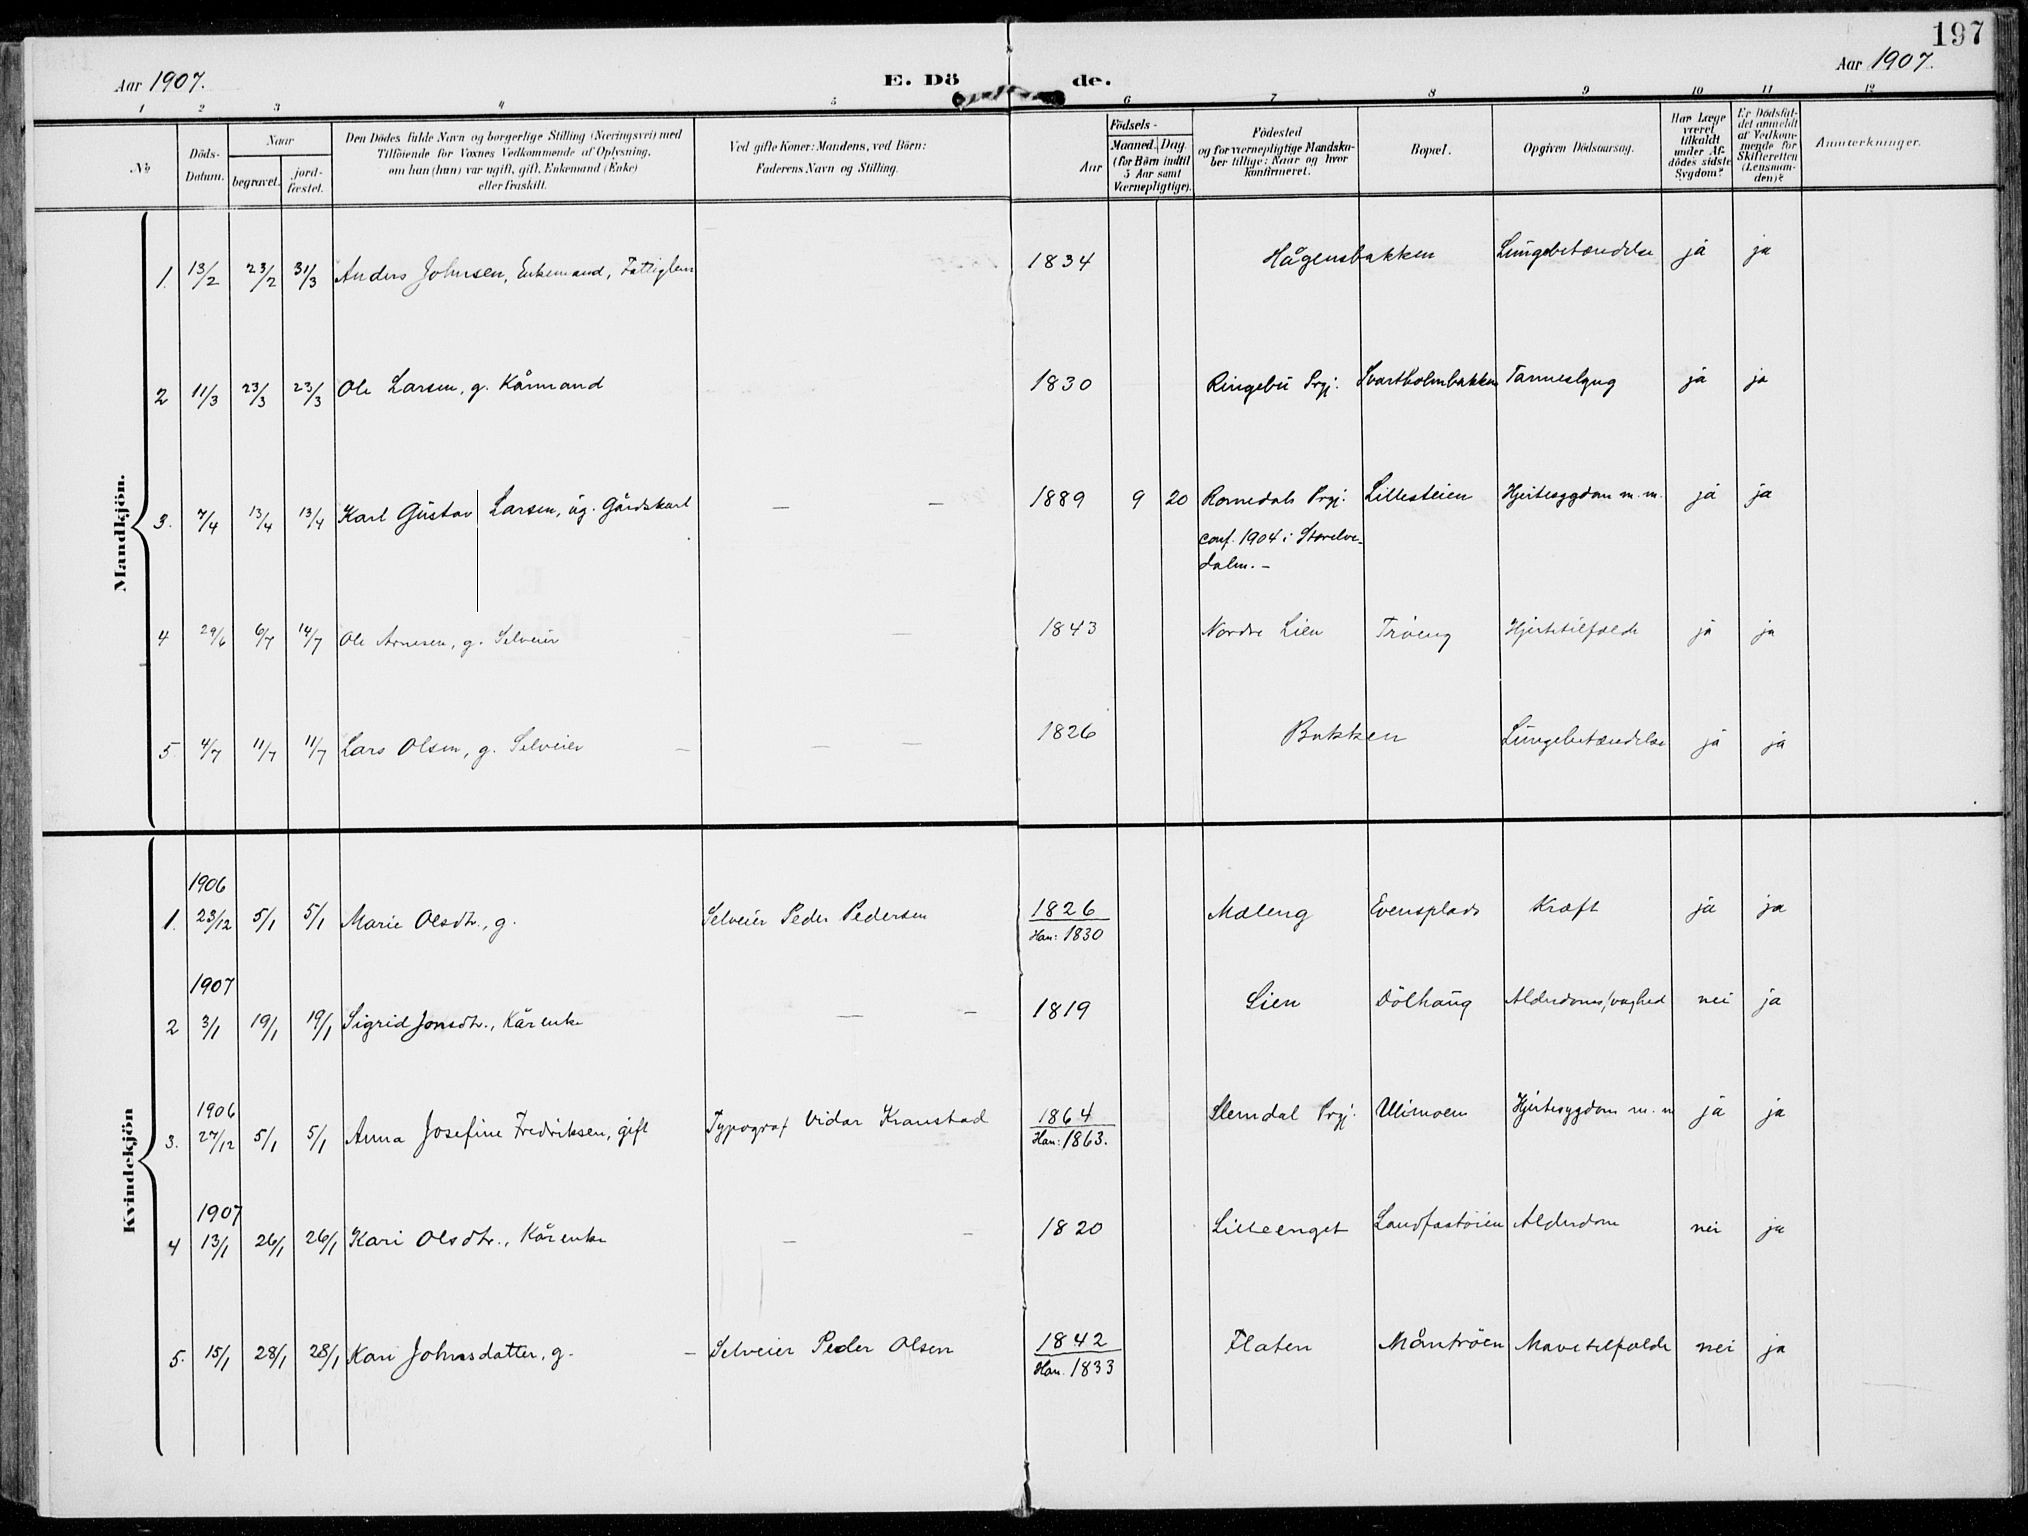 197
Aar 1907.
E. Dö de.
Aar 1907.
1 2 3 4 5 6 7 8 9 10 11 12
No
Döds-
Datum.
Naar
begravet.
jord-
fæstet.
Den Dödes fulde Navn og borgerlige Stilling (Næringsvei) med
Tilföiende for Voxnes Vedkommende af Oplysning,
om han (hun) var ugift, gift, Enkemand (Enke)
eller fraskilt.
Ved gifte Koner: Mandens, ved Börn:
Faderens Navn og Stilling.
Födsels-
Aar
Maaned. Dag.
(for Börn indtil
5 Aar samt
Værnepligtige).
Födested
og for værnepligtige Mandska-
ber tillige: Naar og hvor
konfirmeret.
Bopæl.
Opgiven Dödsaarsag.
Har Læge
været
tilkaldt
under Af-
dödes sidste
Sygdom?
Er Dödsfal-
det anmeldt
af Vedkom-
mende for
Skifteretten
(Lensman-
den)?
Anmærkninger.
Mandkjön.
1. 13/2 23/2 31/3 Anders Johnsen, Enkemand, Fattiglem 1834 Hågensbakken Lungebetændelse ja ja
2 11/3 23/3 23/3 Ole Larsen, g. Kårmand 1830 Ringebu Prgj. Svartholmbakken Tarmeslyng ja ja
3. 7/4 13/4 13/4 Karl Gustav Larsen, ug. Gårdskarl — — 1889 9 20 Romedals Prgj. Lillesteien Hjertesygdom m.m. ja ja
conf. 1904 i Storelve-
dalen. –
4 29/6 6/7 14/7 Ole Arnesen, g. Selveier — 1843 Nordre Lien Trøeng Hjertetilfælde ja ja
5. 4/7 11/7 11/7 Lars Olsen, g. Selveier — — — 1826 Bakken Lungebetændelse ja ja
Kvindekjön
1906
1. 23/12 5/1 5/1 Marie Olsdtr., g. Selveier Peder Pedersen 1826 Mæleng Evensplads Kræft ja ja
Han: 1830
1907
2 3/1 19/1 19/1 Sigrid Jonsdtr., Kårenke — — 1819 Lien Dölhaug Alderdomssvaghed nei ja
1906
3. 27/12 5/1 5/1 Anna Josefine Fredriksen, gift Typograf Vidar Kranstad 1864 Slemdal Prgj. Ulimoen Hjertesygdom m.m ja ja
Han: 1863.
1907
4 13/1 26/1 26/1 Kari Olsdtr., Kårenke — — 1820 Lilleenget Landfastöien Alderdom nei ja
5. 15/1 28/1 28/1 Kari Johnsdatter, g. — Selveier Peder Olsen 1842 Flaten Måntröen Mavetilfælde nei ja
Han. 1833